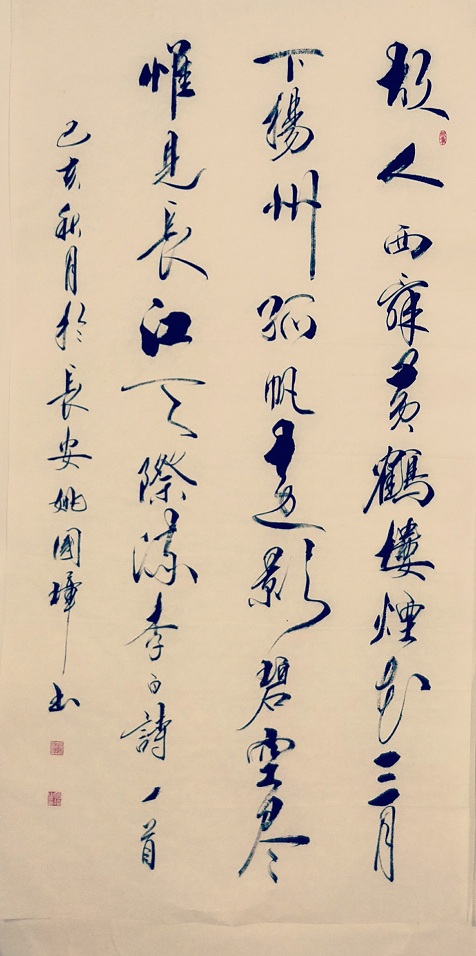 故人西辞黄鶴樓煙花三月
下揚州孤帆遠影碧空尽
惟見長江天際流李白詩一首
己亥秋月於長安姚國瑋书